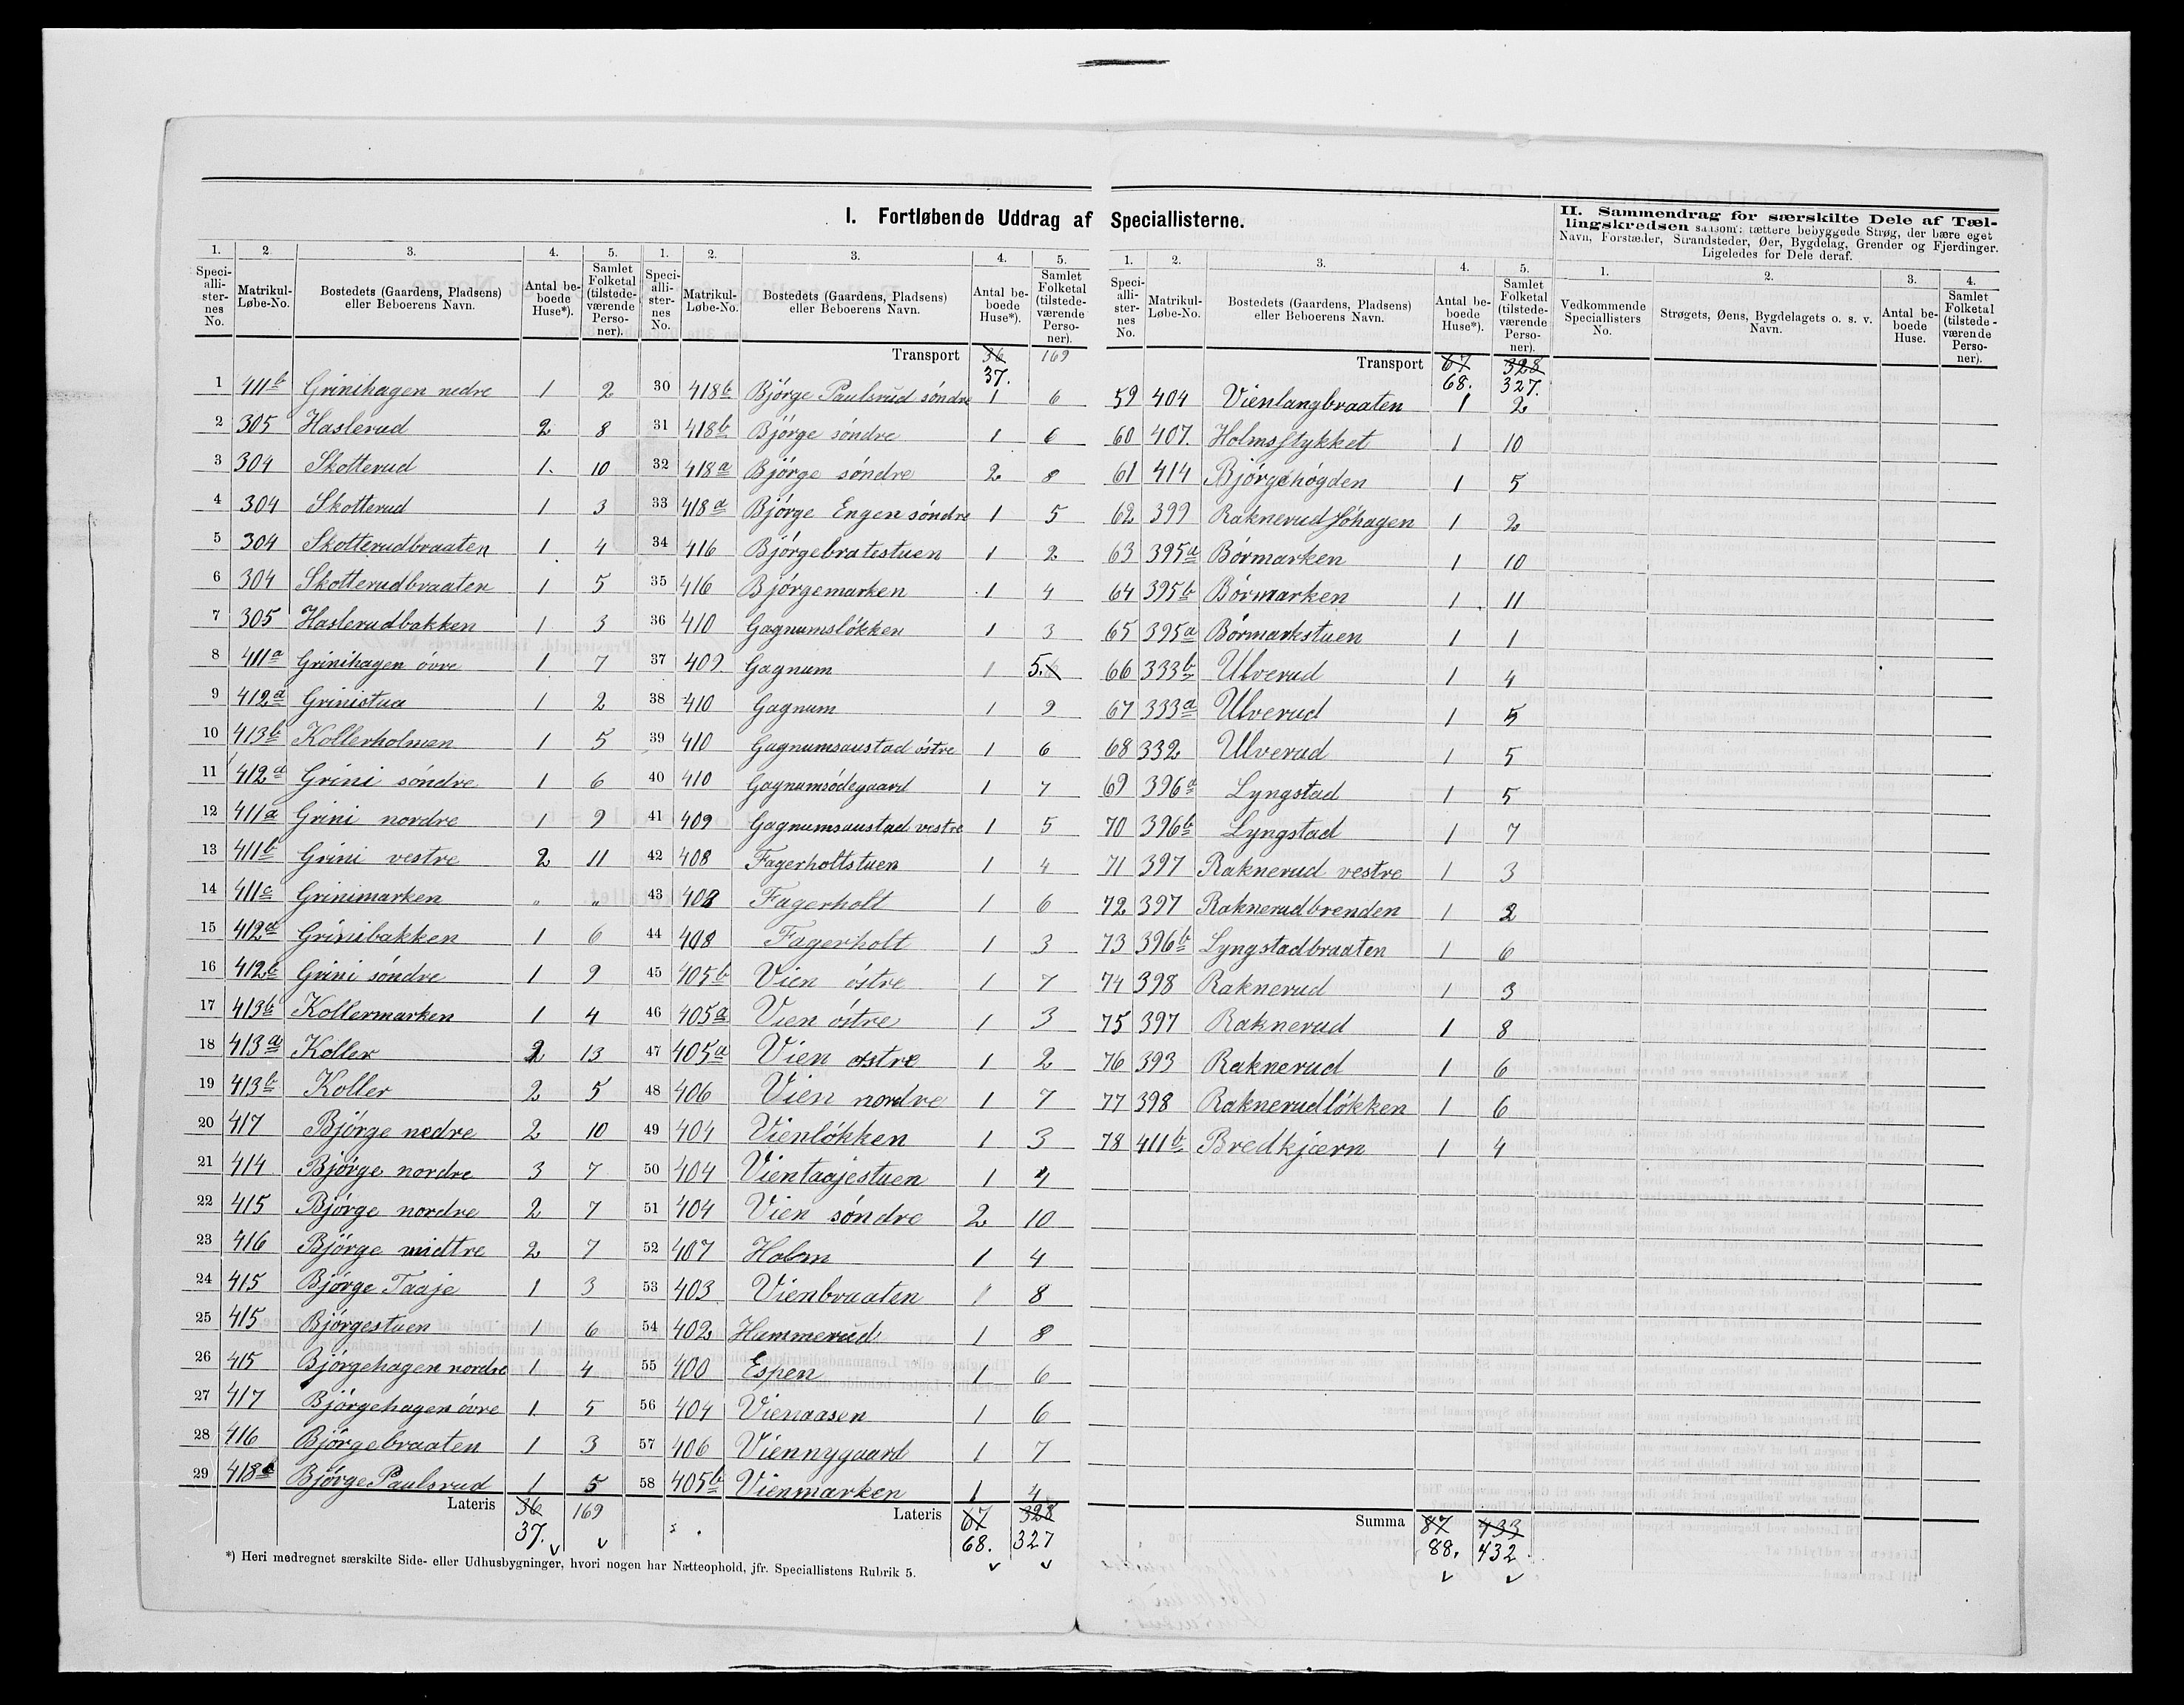 I. Fortløbende Uddrag af Speciallisterne.
II. Sammendrag for særskilte Dele af Tæl-
lingskredsen saasom: tættere bebyggede Strøg, der bære eget
Navn, Forstæder, Strandsteder, Øer, Bygdelag, Grender og Fjerdinger.
Ligeledes for Dele deraf.
1. 2. 3. 4. 5.
Speciallisternes No. Matrikul-Løbe-No. Bostedets (Gaardens, Pladsens) eller Beboerens Navn. Antal beboede Huse*). Samlet Folketal (tilstedeværende Personer).
1 411b Grinihagen nedre 1 2
2 305 Haslerud 2 8
3 304 Skotterud 1 10
4 304 Skotterud 1 3
5 304 Skotterudbraaten 1 4
6 304 Skotterudbraaten 1 5
7 305 Haslerudbakken 1 3
8 411a Grinihagen övre 1 7
9 412a Grinistua 1 2
10 413b Kollerholmen 1 5
11 412a Grini söndre 1 6
12 411a Grini nordre 1 9
13 411b Grini vestre 2 11
14 411c Grinimarken " "
15 412a Grinibakken 1 6
16 412b Grini söndre 1 9
17 413b Kollermarken 1 4
18 413a Koller 2 13
19 413b Koller 2 5
20 417 Björge nedre 2 10
21 414 Björge nordre 3 7
22 415 Bjørge nordre 2 7
23 416 Bjørge midtre 2 7
24 415 Bjørge Taaje 1 3
25 415 Bjørgestuen 1 6
26 415 Bjørgehagen nordre 1 4
27 417 Bjørgehagen övre 1 5
28 416 Bjørgebraaten 1 3
29 418 Bjørge Paulsrud 1 5
Lateris 36 169
37.
1. 2. 3. 4. 5.
Speciallisternes No. Matrikul-Løbe-No. Bostedets (Gaardens, Pladsens) eller Beboerens Navn. Antal beboede Huse*). Samlet Folketal (tilstedeværende Personer).
Transport 36 169
37.
30 418b Bjørge Paulsrud söndre 1 6
31 418b Bjørge söndre 1 6
32 418a Bjørge söndre 2 8
33 418a Bjørge Engen söndre 1 5
34 416 Bjørgebratestuen 1 2
35 416 Bjørgemarken 1 4
36 410 Gagnumslökken 1 3
37 409 Gagnum 1 5.
38 410 Gagnum 1 9
39 410 Gagnumsaustad östre 1 6
40 410 Gagnumsödegaard 1 7
41 409 Gagnumsaustad vestre 1 5
42 408 Fagerholtstuen 1 4
43 408 Fagerholt 1 6
44 408 Fagerholt 1 3
45 405b Vien östre 1 7
46 405a Vien östre 1 3
47 405a Vien östre 1 2
48 406 Vien nordre 1 7
49 404 Vienlökken 1 3
50 404 Vientaajestuen 1 4
51 404 Vien söndre 2 10
52 407 Holm 1 4
53 403 Vienbraaten 1 8
54 402 Hammerud 1 8
55 400 Espen 1 6
56 404 Vienaasen 1 6
57 406 Viennygaard 1 7
58 405b Vienmarken 1 4
Lateris 67 328
68. 327
1. 2. 3. 4. 5.
Speciallisternes No. Matrikul-Løbe-No. Bostedets (Gaardens, Pladsens) eller Beboerens Navn. Antal beboede Huse*). Samlet Folketal (tilstedeværende Personer).
Transport 67 328
68. 327.
59 404 Vienlangbraaten 1 2
60 407. Holmsstykket 1 10
61 414 Bjørgehögden 1 5
62 399 Raknerud Söhagen 1 2
63 395a Börmarken 1 10
64 395b Börmarken 1 11
65 395a Börmarkstuen 1 1
66 333b Ulverud 1 4
67 333a Ulverud 1 5
68 332 Ulverud 1 5
69 396a Lyngstad 1 5
70 396b Lyngstad 1 7
71 397 Raknerud vestre 1 3
72 397 Raknerudbrenden 1 2
73 396b Lyngstadbraaten 1 6
74 398 Raknerud 1 3
75 397 Raknerud 1 8
76 393 Raknerud 1 6
77 398 Raknerudlökken 1 6
78 411b Bredkjærn 1 4
Summa 87 433
88. 432
1. 2. 3. 4.
Vedkommende Speciallisters No. Strøgets, Øens, Bygdelagets o. s. v. Navn. Antal beboede Huse. Samlet Folketal (tilstedeværende Personer).
*) Heri medregnet særskilte Side- eller Udhusbygninger, hvori nogen har Natteophold, jfr. Speciallistens Rubrik 5.